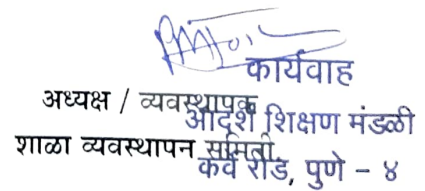 कार्यवाह
अध्यक्ष / व्यवस्थापक
आदर्श शिक्षण मंडळी
शाळा व्यवस्थापन समिती
कर्वे रोड, पुणे - ४